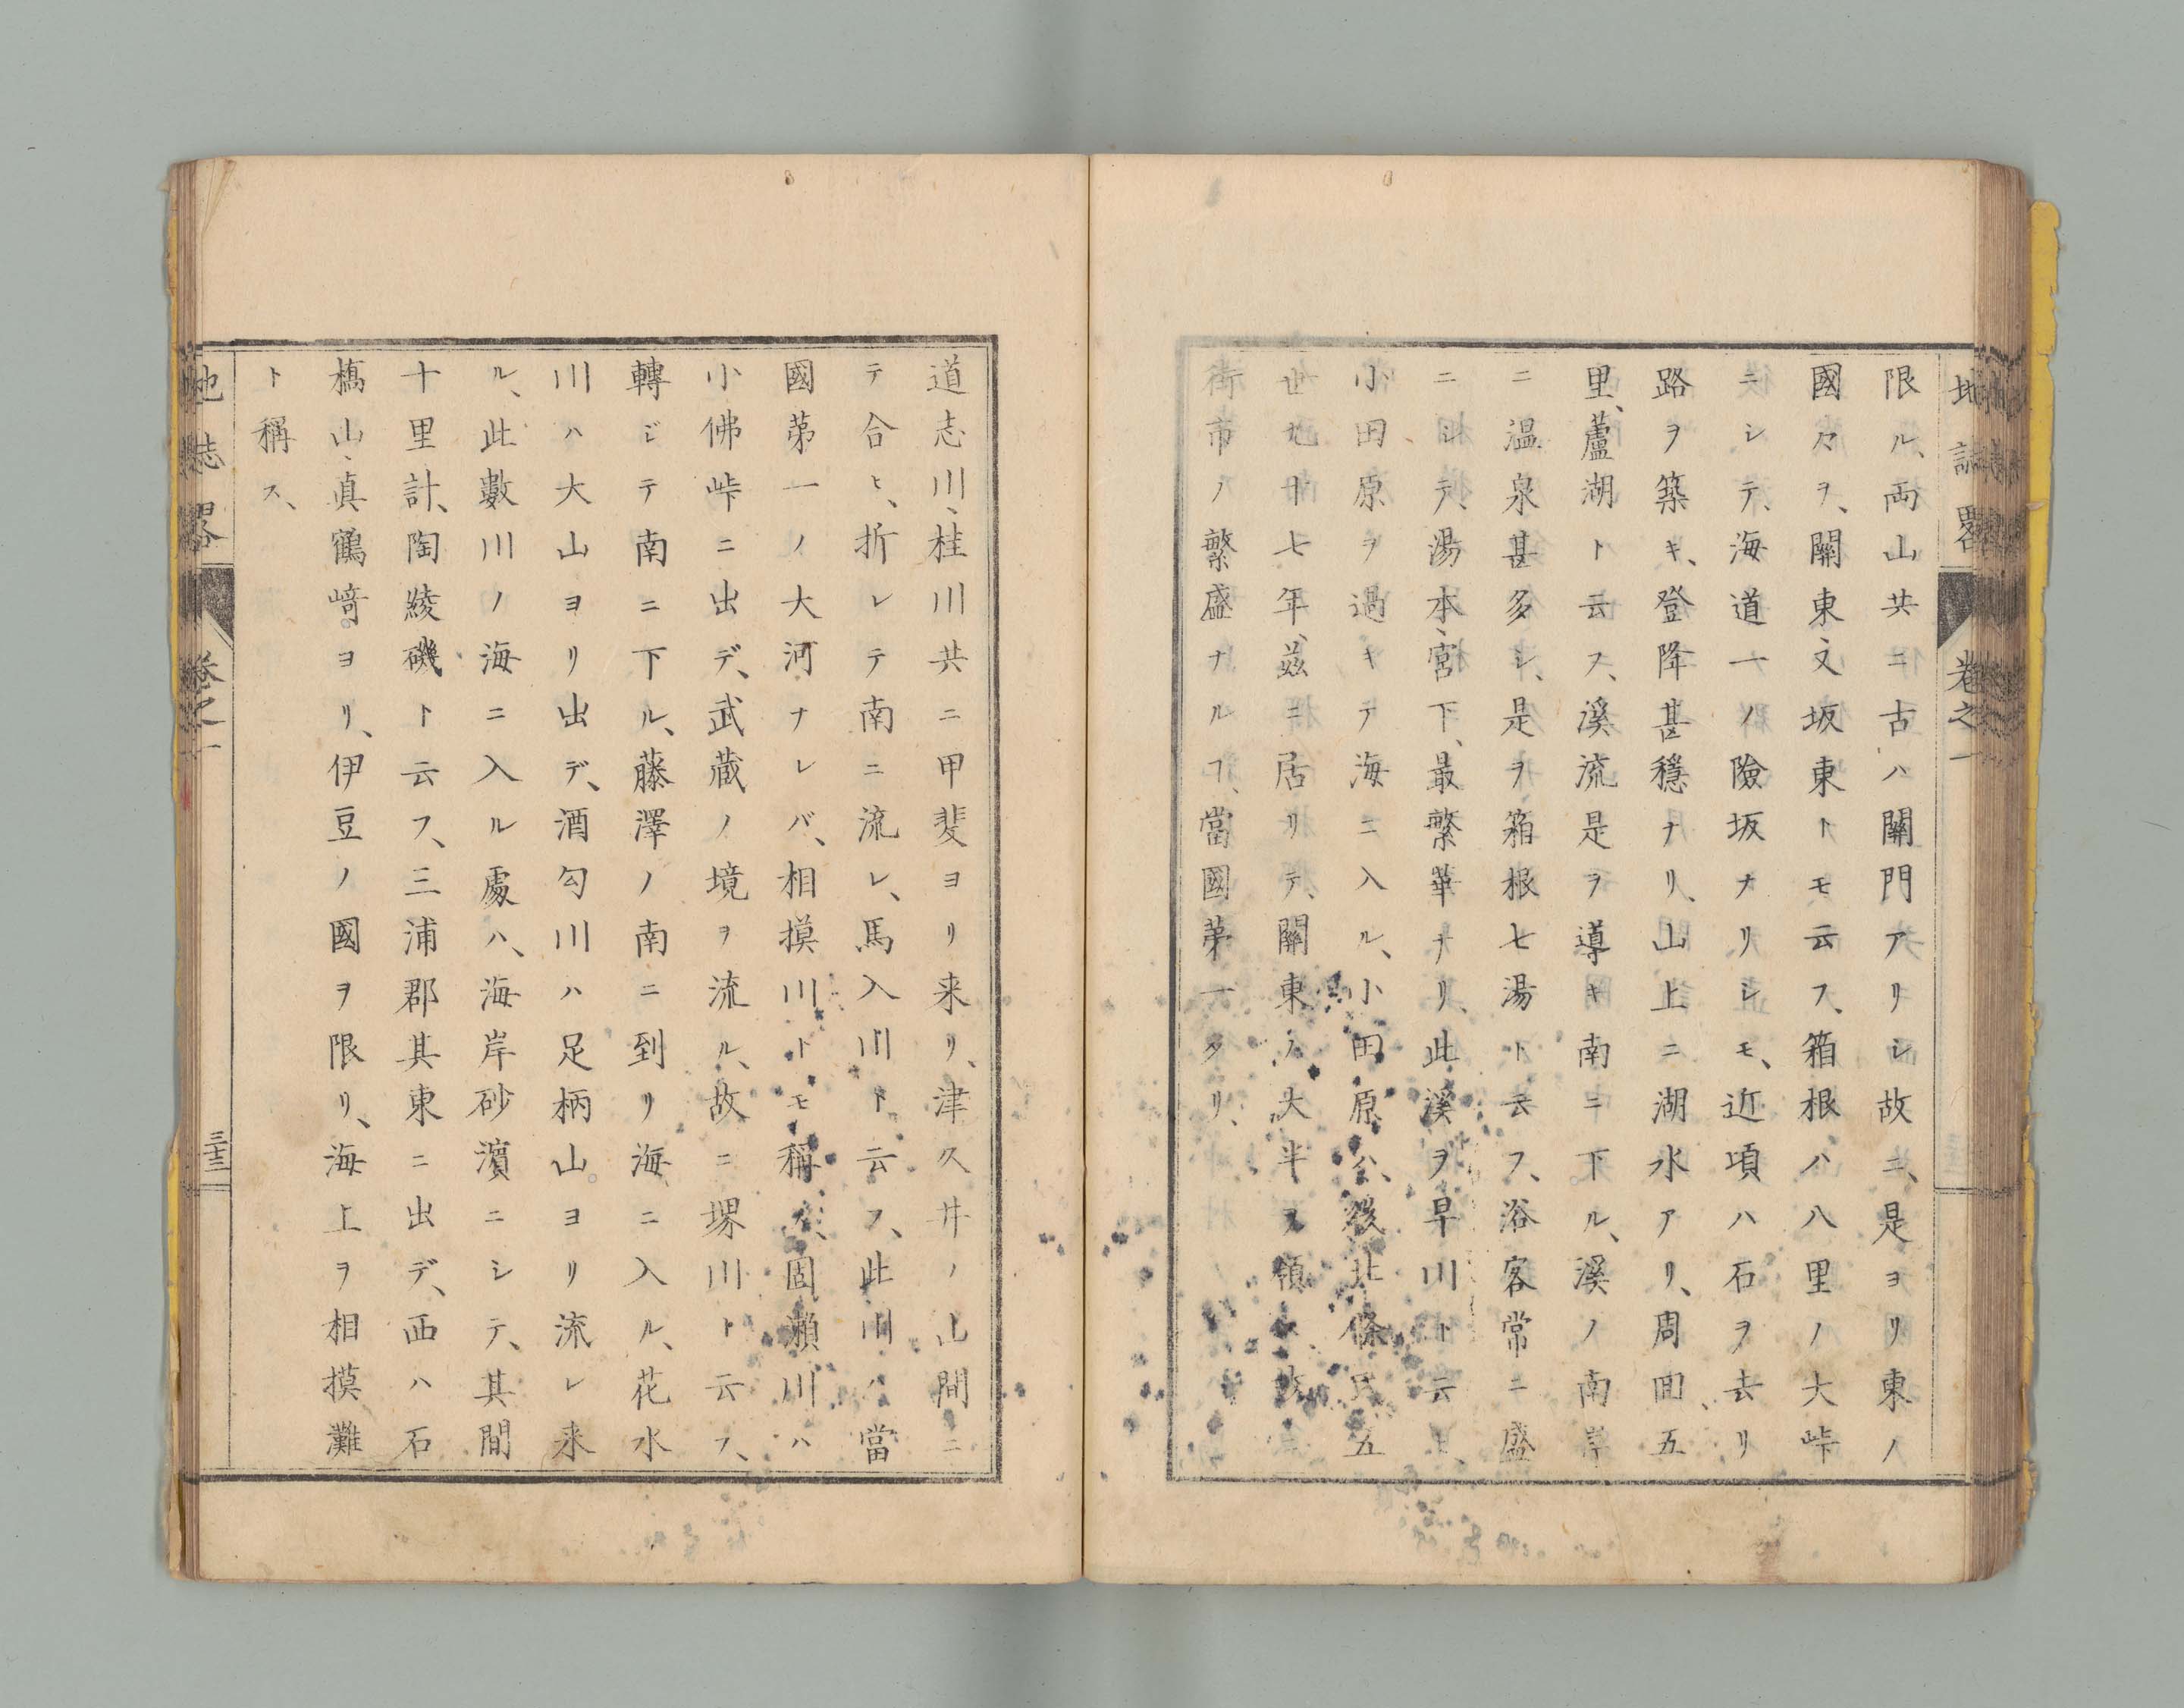 地誌畧 卷之一
限ル、両山共ニ古ハ關門アリシ故ニ、是ヨリ東ノ
國々ヲ、關東、又坂東トモ云フ、箱根ハ八里ノ大峠
ニシテ、海道一ノ險坂ナリシモ、近頃ハ石ヲ去リ
路ヲ築キ、登降甚穏ナリ、山上ニ湖水アリ、周囬五
里、蘆湖ト云フ、溪流是ヲ導キ南ニ下ル、溪ノ南岸
ニ温泉甚多シ、是ヲ箱根七湯ト云フ、浴客常ニ盛
ニシテ、湯本、宮下、最繁華ナリ、此溪ヲ早川ト云ヒ、
小田原ヲ過キテ海ニ入ル、小田原ハ、後北條氏五
世九十七年、茲ニ居リテ、關東ノ大半ヲ領セ故ニ
街市ノ繁盛ナルヿ、當國第一タリ、
道志川、桂川共ニ甲斐ヨリ来リ、津久井ノ山間ニ
テ合ヒ、折レテ南ニ流レ、馬入川ト云フ、此川ハ當
國第一ノ大河ナレバ、相摸川トモ稱ス、固瀬川ハ
小佛峠ニ出デ、武蔵ノ境ヲ流ル、故ニ堺川ト云フ、
轉ジテ南ニ下ル、藤澤ノ南ニ到リ海ニ入ル、花水
川ハ大山ヨリ出デ、酒匂川ハ足柄山ヨリ流レ来
ル、此數川ノ海ニ入ル處ハ、海岸砂濱ニシテ、其間
十里計、陶綾磯ト云フ、三浦郡其東ニ出デ、西ハ石
橋山、眞鶴﨑ヨリ、伊豆ノ國ヲ限リ、海上ヲ相摸灘
ト稱ス、
地誌畧 卷之一 三十三